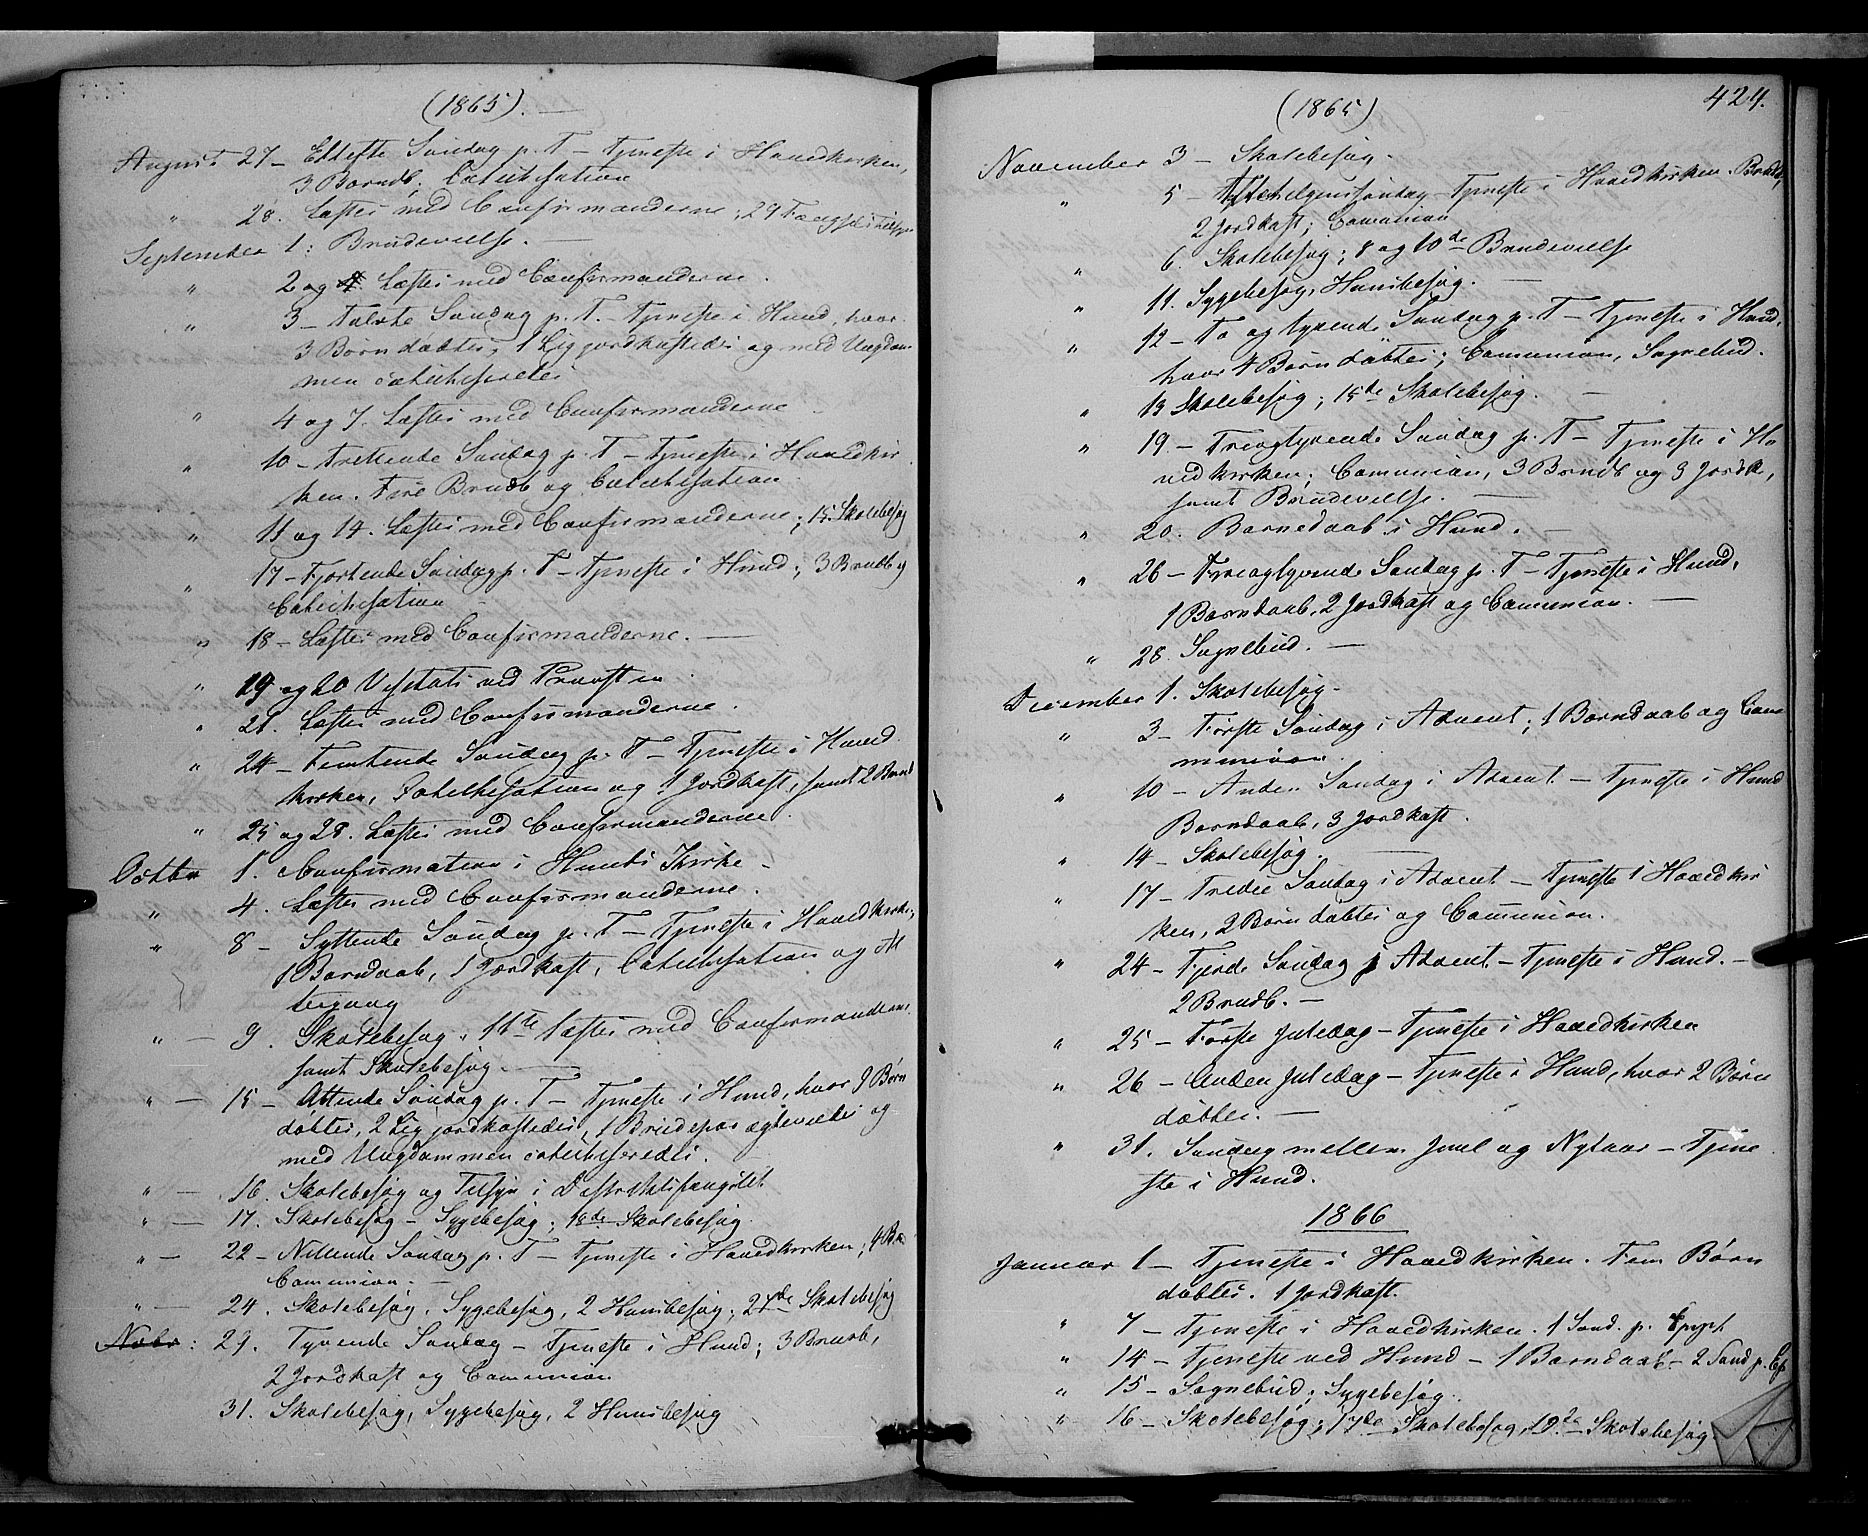 (1865). —
August 27 — Ellefte Søndag p. T — Tjeneste i Hovedkirken,
3 Barndb, Catechisation
" 28. Læstes med Confirmanderne; 29
September 1: Brudevielse. —
" 2 og 4. Læstes med Confirmanderne.
" 3 — Tolvte Søndag p. T. — Tjeneste i Hund, hvor
3 Børn døbtes, 1 Lig jordkastedes og med Ungdom
men catechiseredes
" 4 og 7. Læstes med Confirmanderne
" 10 — Trettende Søndag p. T — Tjeneste i Hovedkir
ken. Fire Brudb og Catechisation.
" 11 og 14. Læstes med Confirmanderne; 15. Skolebesøg
" 17 — Fjortende Søndag p. T — Tjeneste i Hund; 3 Brudb og
Catechisation
" 18 — Læstes med Confirmanderne. —
" 19 og 20 Visitats ved Provsten
" 21. Læstes med Confirmanderne.
" 24 — Femtende Søndag p. T — Tjeneste i Hoved
kirken, Catechisation og 1 Jordkast, samt 2 Barnd
" 25 og 28. Læstes med Confirmanderne.
Octbr 1. Confirmation i Hunds Kirke —
" 4. Læstes med Confirmanderne.
" 8 — Syttende Søndag p. T — Tjeneste i Hovedkirke;
1 Barndaab, 1 Jordkast, Catechisation og Al
tergang
" — 9. Skolebesøg. 11te læstes med Confirmanderne
samt Skolebesøg. —
" — 15 — Attende Søndag p. T — Tjeneste i Hund, hvor 9 Børn
døbtes, 2 Lig jordkastedes, 1 Brudepar ægteviedes og
med Ungdommen catechiseredes.
" — 16. Skolebesøg og Tilsyn i Distriktsfængslet
" — 17. Skolebesøg — Sygebesøg; 18de Skolebesøg
" — 22 — Nittende Søndag p. T — Tjeneste i Hovedkirken; 4 Bø
Communion. —
" — 24. Skolebesøg, Sygebesøg, 2 Huusbesøg; 27de Skolebesøg
Novbr: 29. Tyvende Søndag — Tjeneste i Hund; 3 Brudb,
2 Jordkast og Communion
31. Skolebesøg, Sygebesøg, 2 Huusbesøg
424.
(1865)
November 3 — Skolebesøg.
" 5 — Allehelgenssøndag — Tjeneste i Hovedkirken. Brudb,
2 Jordkast; Comunion
" 6. Skolebesøg; 8 og 10de Brudevielse
" 11. Sygebesøg, Huusbesøg. —
" 12 — To og tyvende Søndag p. T — Tjeneste i Hund,
hvor 4 Børn døbtes; Communion, Sognebud.
" 13 Skolebesøg; 15de Skolebesøg. —
" 19 — Treogtyvende Søndag p. T — Tjeneste i Ho
vedkirken; Communion, 3 Barndb og 3 Jordk,
samt Brudevielse. —
" 20. Barnedaab i Hund. —
" 26 — Fireogtyvende Søndag p. T — Tjeneste i Hund,
1 Barndaab, 2 Jordkast og Communion. —
" 28. Sognebud. —
December 1. Skolebesøg.
" 3 — Første Søndag i Advent; 1 Barndaab og Com
munion.
" 10 — Anden Søndag i Advent — Tjeneste i Hund
Barndaab, 3 Jordkast.
" 14 — Skolebesøg. —
" 17 — Tredie Søndag i Advent — Tjeneste i Hovedkir
ken, 2 Børn døbtes og Communion.
" 24 — Fjerde Søndag i Advent — Tjeneste i Hund. —
2 Brudb. —
" 25 — Første Juledag — Tjeneste i Hovedkirken
" 26 — Anden Juledag — Tjeneste i Hund, hvor 2 Børn
døbtes. —
" 31. Søndag mellem Juul og Nytaar — Tjene
ste i Hund.
1866
Januar 1 — Tjeneste i Hovedkirken. Fem Børn
døbtes. 1 Jordkast.
" 7 — Tjeneste i Hovedkirken. 1 Sønd. p. Epiph.
" 14 — Tjeneste ved Hund — 1 Barndaab — 2 Sønd p. Ep
" 15 — Sognebud; Sygebesøg.
" 16 — Skolebesøg; 17de Skolebesøg, 19de Skolebesøg.